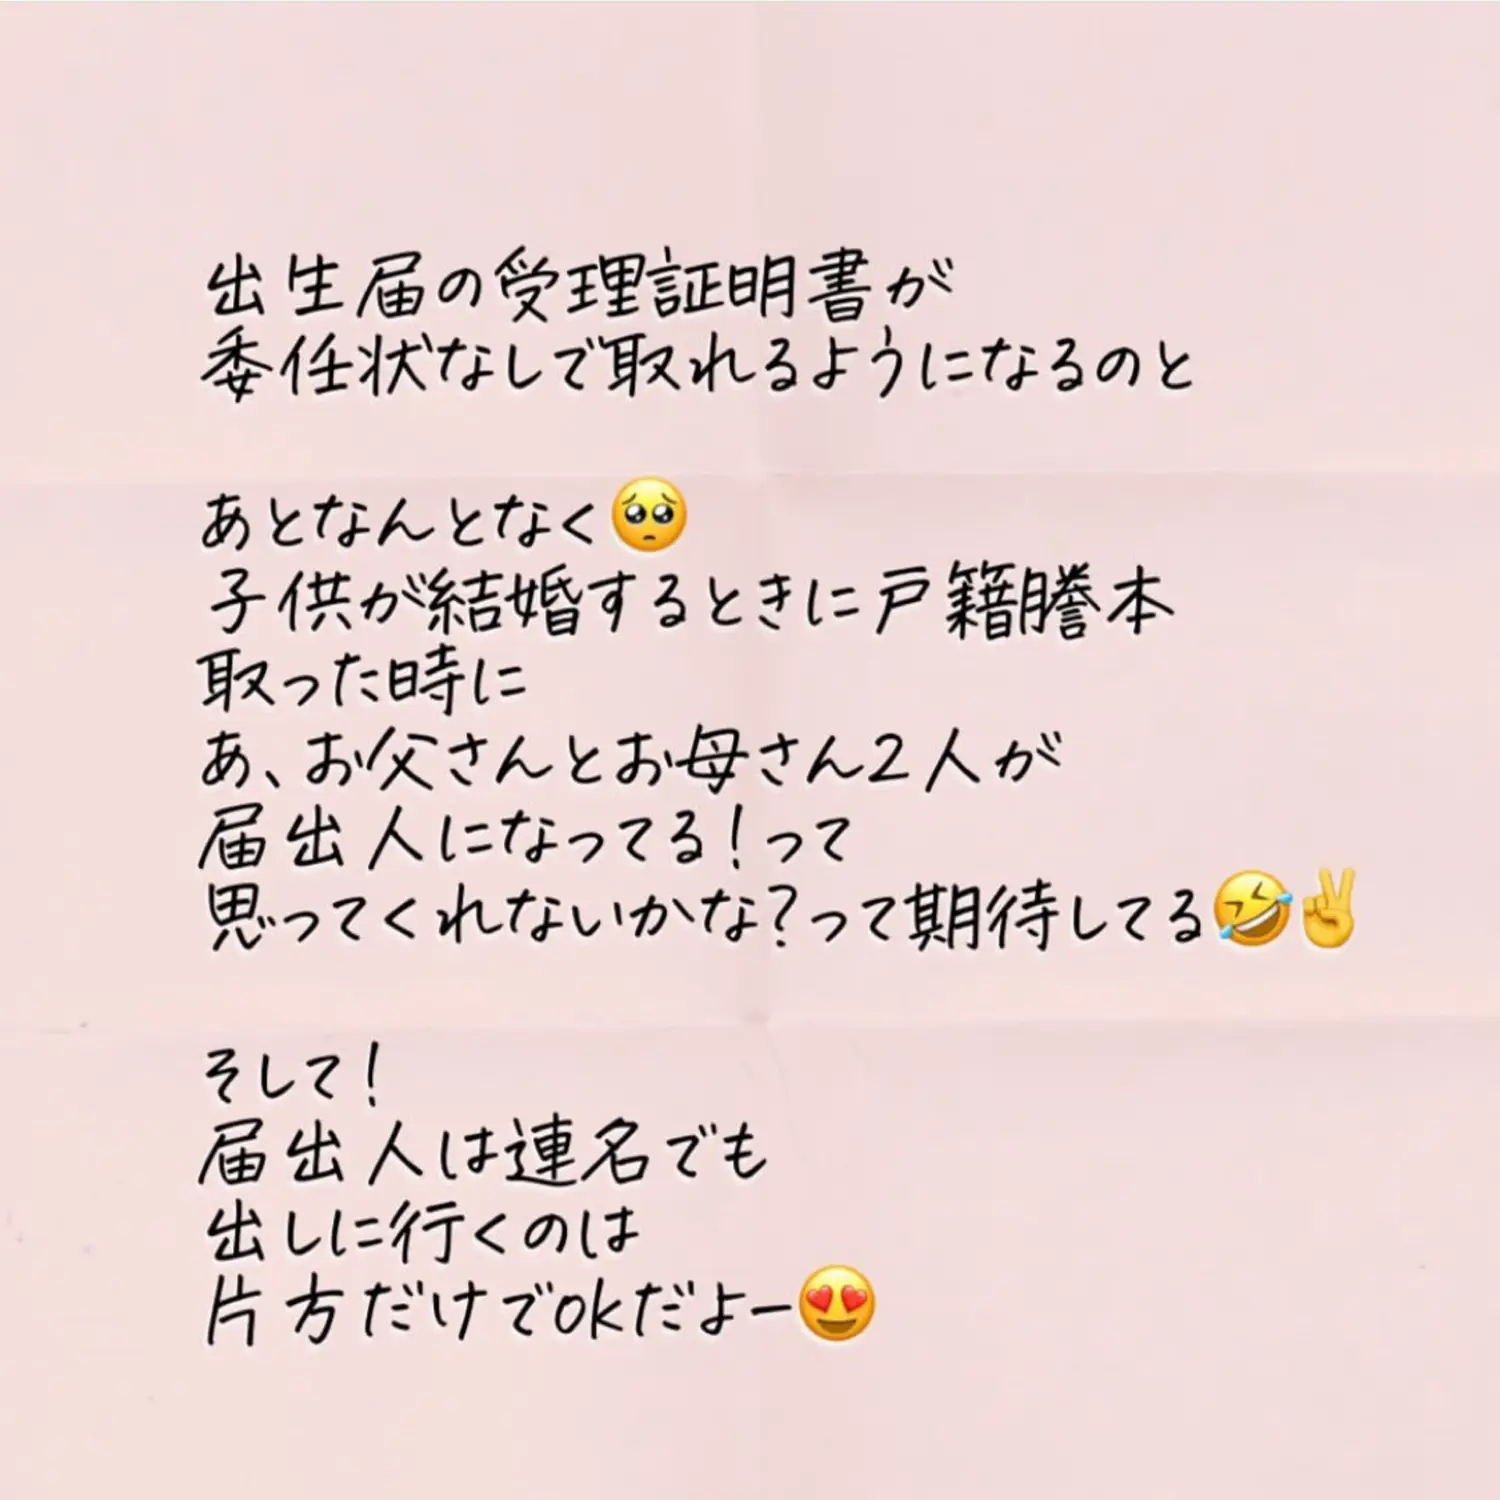 出生届の受理証明書が
委任状なしで取れるようになるのと
あとなんとなく🥺
子供が結婚するときに戸籍謄本
取った時に
あ、お父さんとお母さん2人が
届出人になってる!って
思ってくれないかな?って期待してる🤣✌️
そして!
届出人は連名でも
出しに行くのは
片方だけでokだよー😍